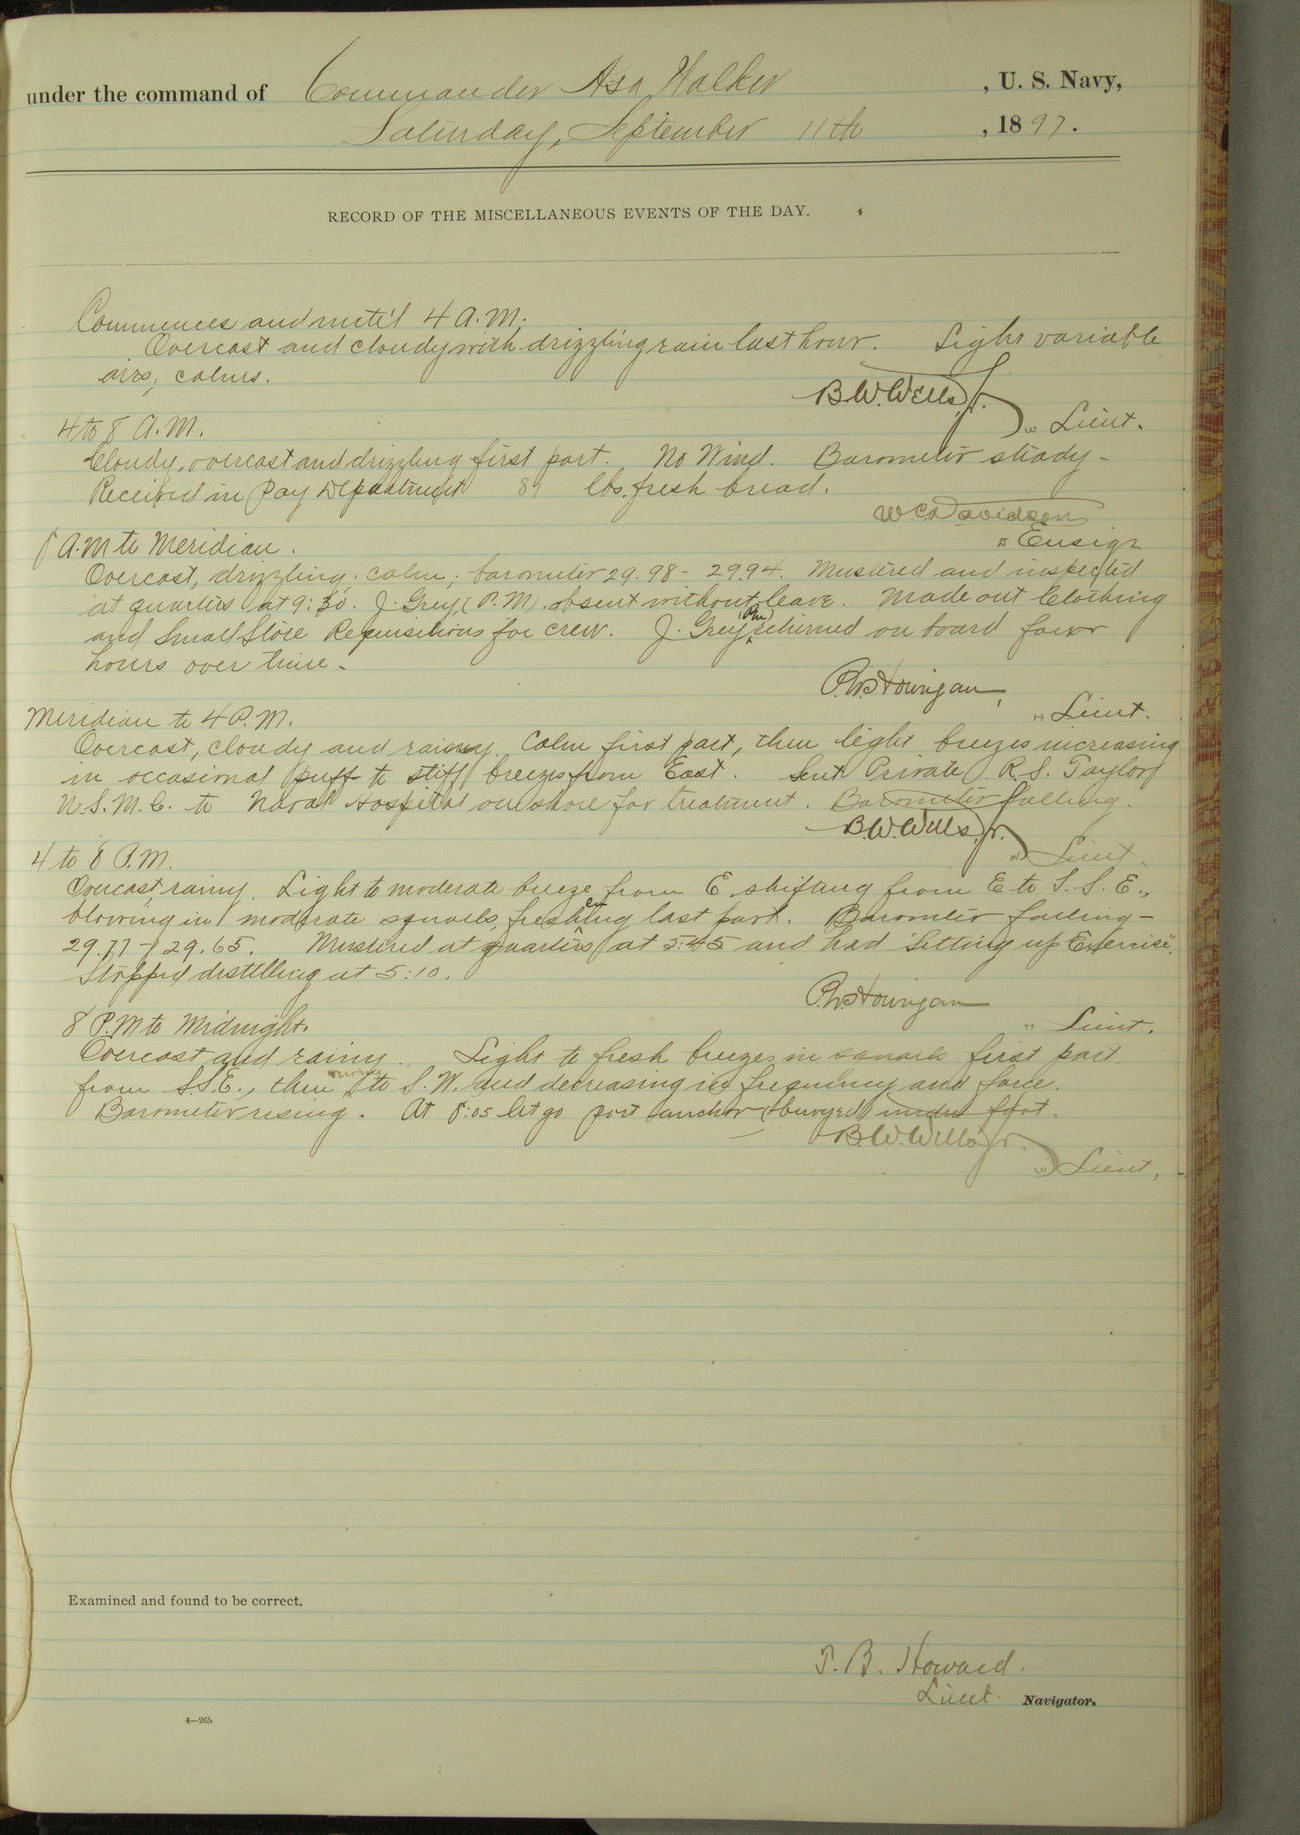 under the command of Commander Asa Walker, U. S. Navy,
Saturday, September 11th, 1897.
RECORD OF THE MISCELLANEOUS EVENTS OF THE DAY.
Commences and until 4 A.M.
Overcast and cloudy with drizzling rain last hour. Light variable
airs, calms.
B.W. Wells, Jr.
" Lieut.
4 to 8 A.M.
Cloudy, overcast and drizzling first part. No Wind. Barometer steady -
Received in Pay Department 81 lbs. fresh bread.
W C Davidson
" Ensign
8 A.M to Meridian.
Overcast, drizzling; calm; barometer 29.98 - 29.94. Mustered and inspected
at quarters at 9:30. J. Grey, (P.M). absent without leave. Made out Clothing
and Small Store Requisitions for crew. J. Grey (P.M) returned on board four
hours over time -
P.W. Hourigan,
" Lieut.
Meridian to 4 P.M.
Overcast, cloudy and rainy. Calm first part, then light breezes increasing
in occasional puff to stiff breezes from East. Sent Private R.S. Taylor
U.S.M.C. to Naval Hospital on shore for treatment. Barometer falling.
B.W. Wells, Jr.
" Lieut.
4 to 8 P.M.
Overcast, rainy. Light to moderate breeze from E. shifting from E to S.S.E.,
blowing in moderate squalls, freshening last part. Barometer falling -
29.77 - 29.65. Mustered at quarters at 5:45 and had "Setting up Exercise".
Stopped distilling at 5:10.
P.W. Hourigan
" Lieut.
8 P.M to Midnight.
Overcast and rainy. Light to fresh breezes in squalls first part
from S.S.E., then to S.W. and decreasing in frequency and force.
Barometer rising. At 8:05 let go port anchor (buoyed) under foot.
B.W. Wells Jr.
" Lieut.
Examined and found to be correct.
T. B. Howard.
Lieut. Navigator.
4—265